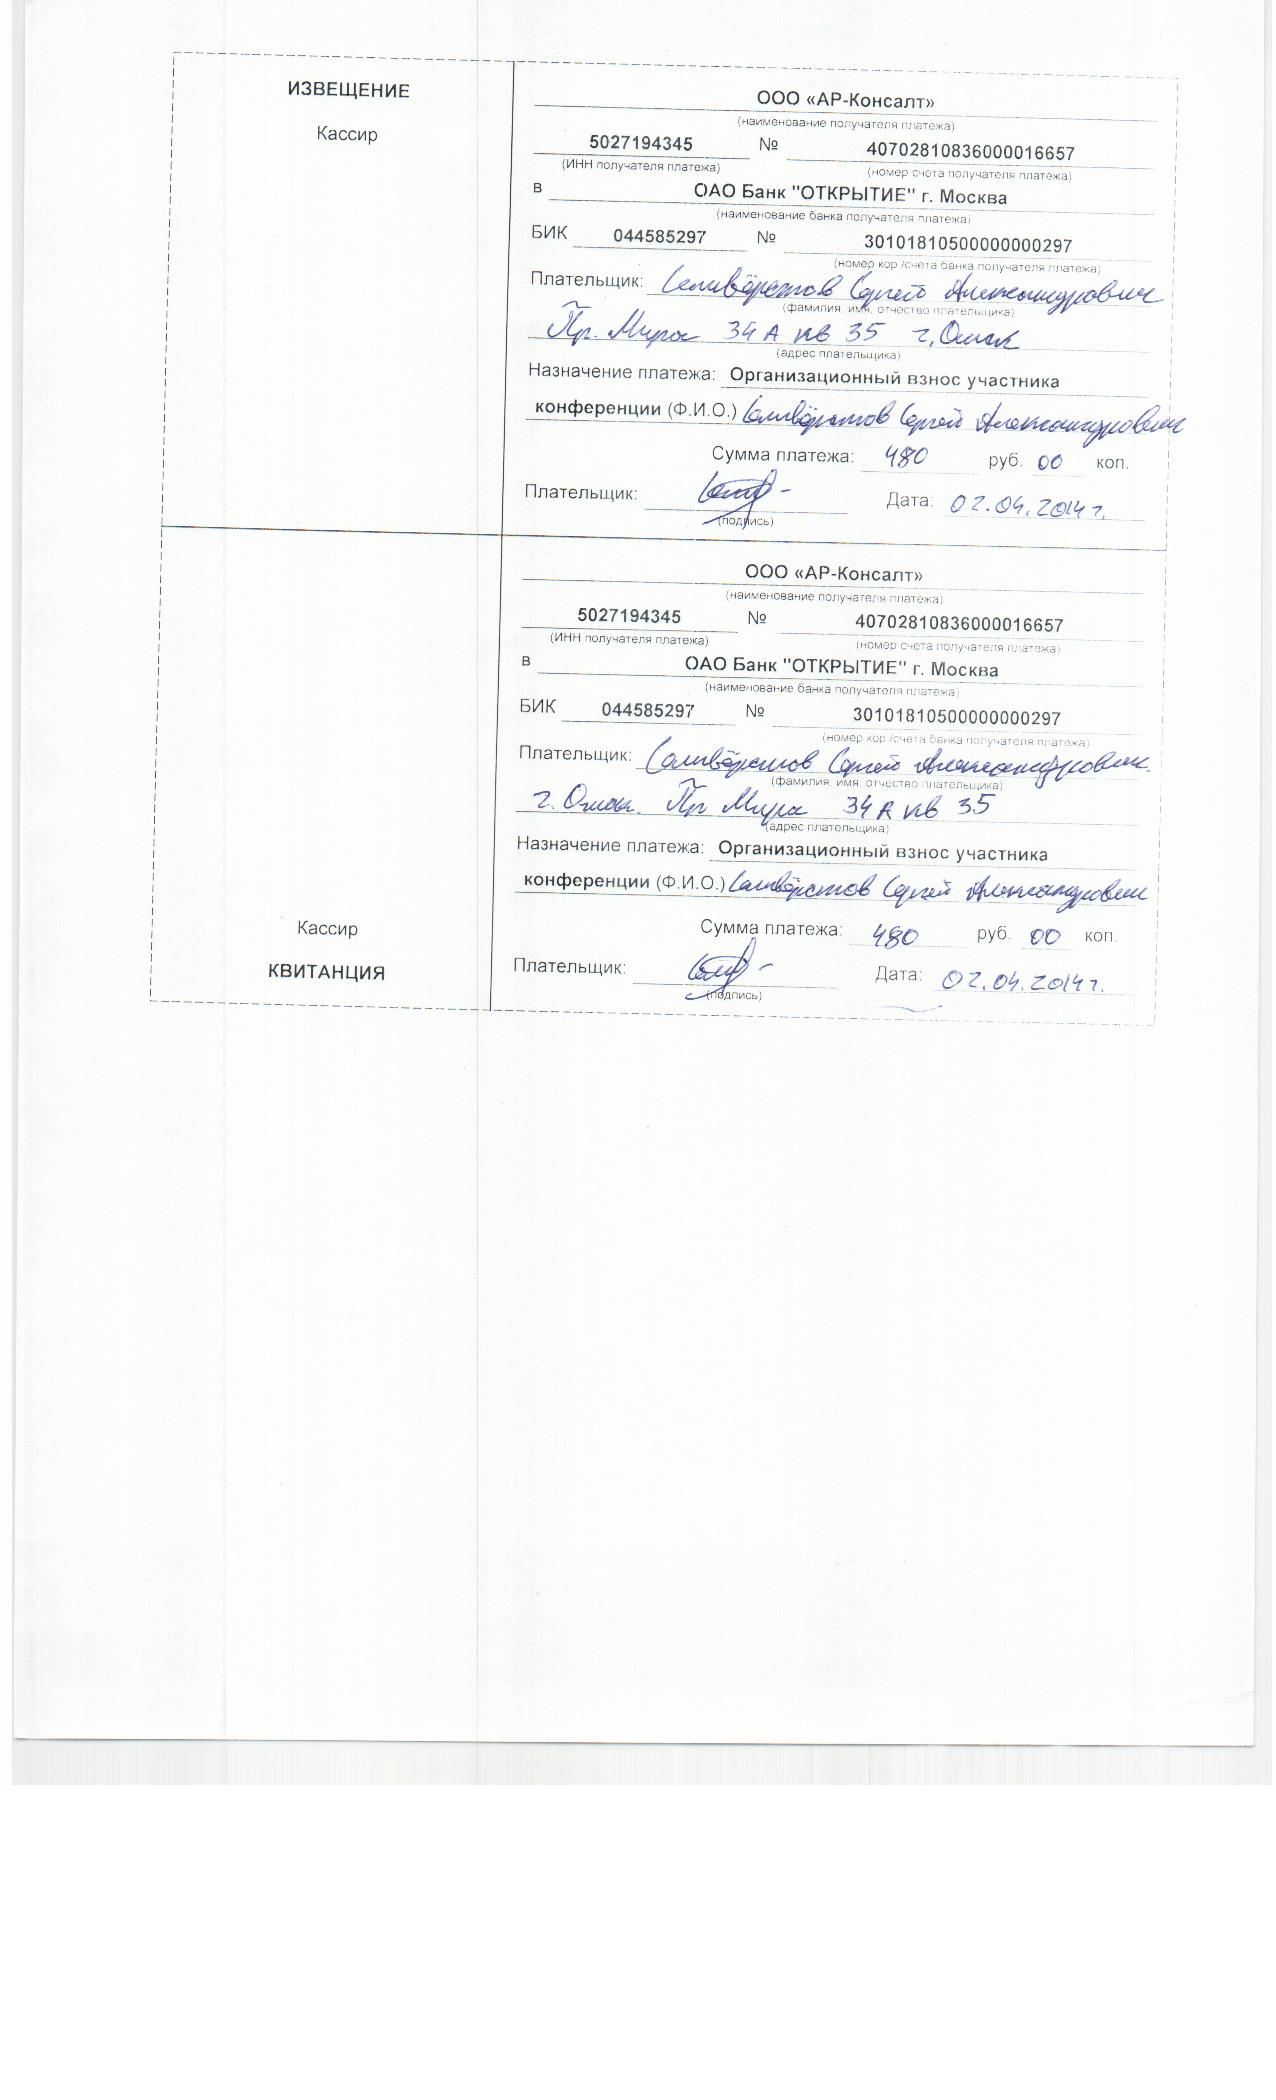 ИЗВЕЩЕНИЕ
Кассир
ООО «АР-Консалт»
(наименование получателя платежа)
5027194345 № 40702810836000016657
(ИНН получателя платежа) (номер счета получателя платежа)
в ОАО Банк "ОТКРЫТИЕ" г. Москва
(наименование банка получателя платежа)
БИК 044585297 № 30101810500000000297
(номер кор /счета банка получателя платежа)
Плательщик: Селивёрстов Сергей Александрович
(фамилия, имя, отчество плательщика)
Пр. Мира 34А кв 35 г. Омск
(адрес плательщика)
Назначение платежа: Организационный взнос участника
конференции (Ф.И.О.) Селивёрстов Сергей Александрович
Сумма платежа: 480 руб. 00 коп.
Плательщик: Дата: 02.04.2014 г.
(подпись)
ООО «АР-Консалт»
(наименование получателя платежа)
5027194345 № 40702810836000016657
(ИНН получателя платежа) (номер счета получателя платежа)
в ОАО Банк "ОТКРЫТИЕ" г. Москва
(наименование банка получателя платежа)
БИК 044585297 № 30101810500000000297
(номер кор /счета банка получателя платежа)
Плательщик: Селивёрстов Сергей Александрович.
(фамилия, имя, отчество плательщика)
г. Омск. Пр Мира 34А кв 35
(адрес плательщика)
Назначение платежа: Организационный взнос участника
конференции (Ф.И.О.) Селивёрстов Сергей Александрович
Кассир
Сумма платежа: 480 руб. 00 коп.
КВИТАНЦИЯ
Плательщик: Дата: 02.04.2014 г.
(подпись)